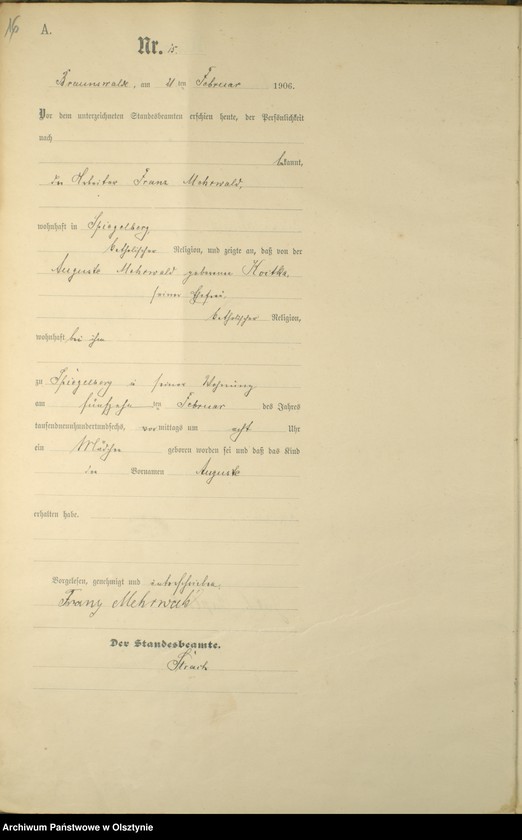 A.
Nr. 15.
Braunswalde, am 21 ten Februar 1906.
Vor dem unterzeichneten Standesbeamten erschien heute, der Persönlichkeit
nach
bekannt,
der Arbeiter Franz Mehrwald,
wohnhaft in Spiegelberg
katholischer Religion, und zeigte an, daß von der
Auguste Mehrwald geborenen Kortka
seiner Ehefrau
katholischer Religion,
wohnhaft bei ihm
zu Spiegelberg in seiner Wohnung
am fünfzehn ten Februar des Jahres
tausendneunhundertundsechs, vor mittags um acht Uhr
ein Mädchen geboren worden sei und daß das Kind
den Vornamen Auguste
erhalten habe.
Vorgelesen, genehmigt und unterschrieben
Franz Mehrwald
Der Standesbeamte.
Archiwum Państwowe w Olsztynie